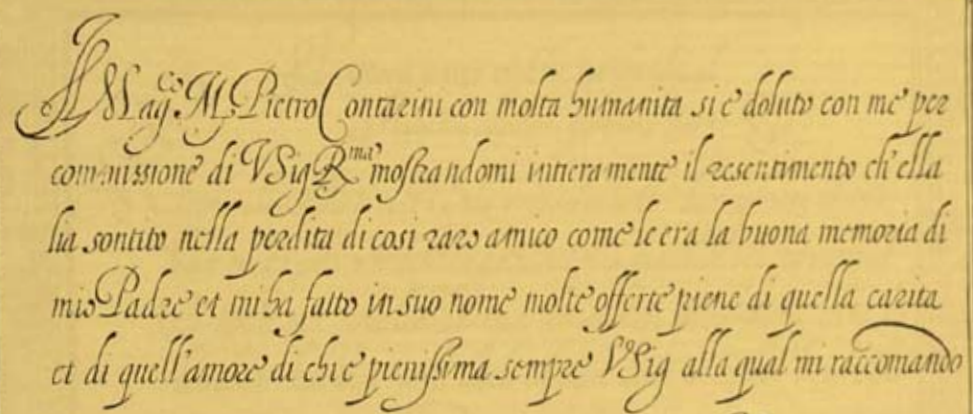 Il Mag.co M. Pietro Contarini con molta humanita si e doluto con me per
commissione di V Sig R.ma mostrandomi intieramente il resentimento ch'ella
ha sentito nella perdita di cosi raro amico come le era la buona memoria di
mio Padre et mi ha fatto in suo nome molte offerte piene di quella carita
et di quell'amore di chi e pienissima sempre V Sig alla qual mi raccomando